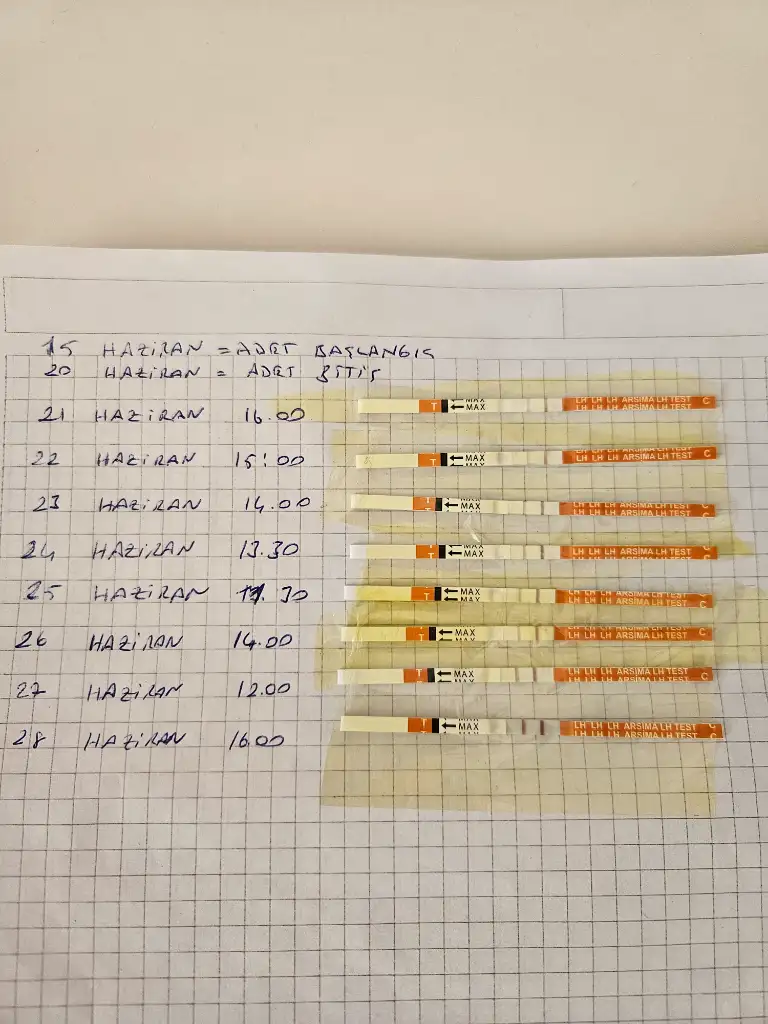 15 HAZİRAN = ADET BAŞLANGIÇ
20 HAZİRAN = ADET BİTİŞ
21 HAZİRAN 16.00 T MAX MAX LH LH LH ARSIMA LH TEST C
22 HAZİRAN 15:00 T MAX LH LH LH ARSIMA LH TEST C
23 HAZİRAN 14.00 T MAX LH LH LH ARSIMA LH TEST C
24 HAZİRAN 13.30 T MAX LH LH LH ARSIMA LH TEST C
25 HAZİRAN 11.30 T MAX LH LH LH ARSIMA LH TEST C
26 HAZİRAN 14.00 T MAX LH LH LH ARSIMA LH TEST C
27 HAZİRAN 12.00 T MAX LH LH LH ARSIMA LH TEST C
28 HAZİRAN 16.00 T MAX LH LH LH ARSIMA LH TEST C